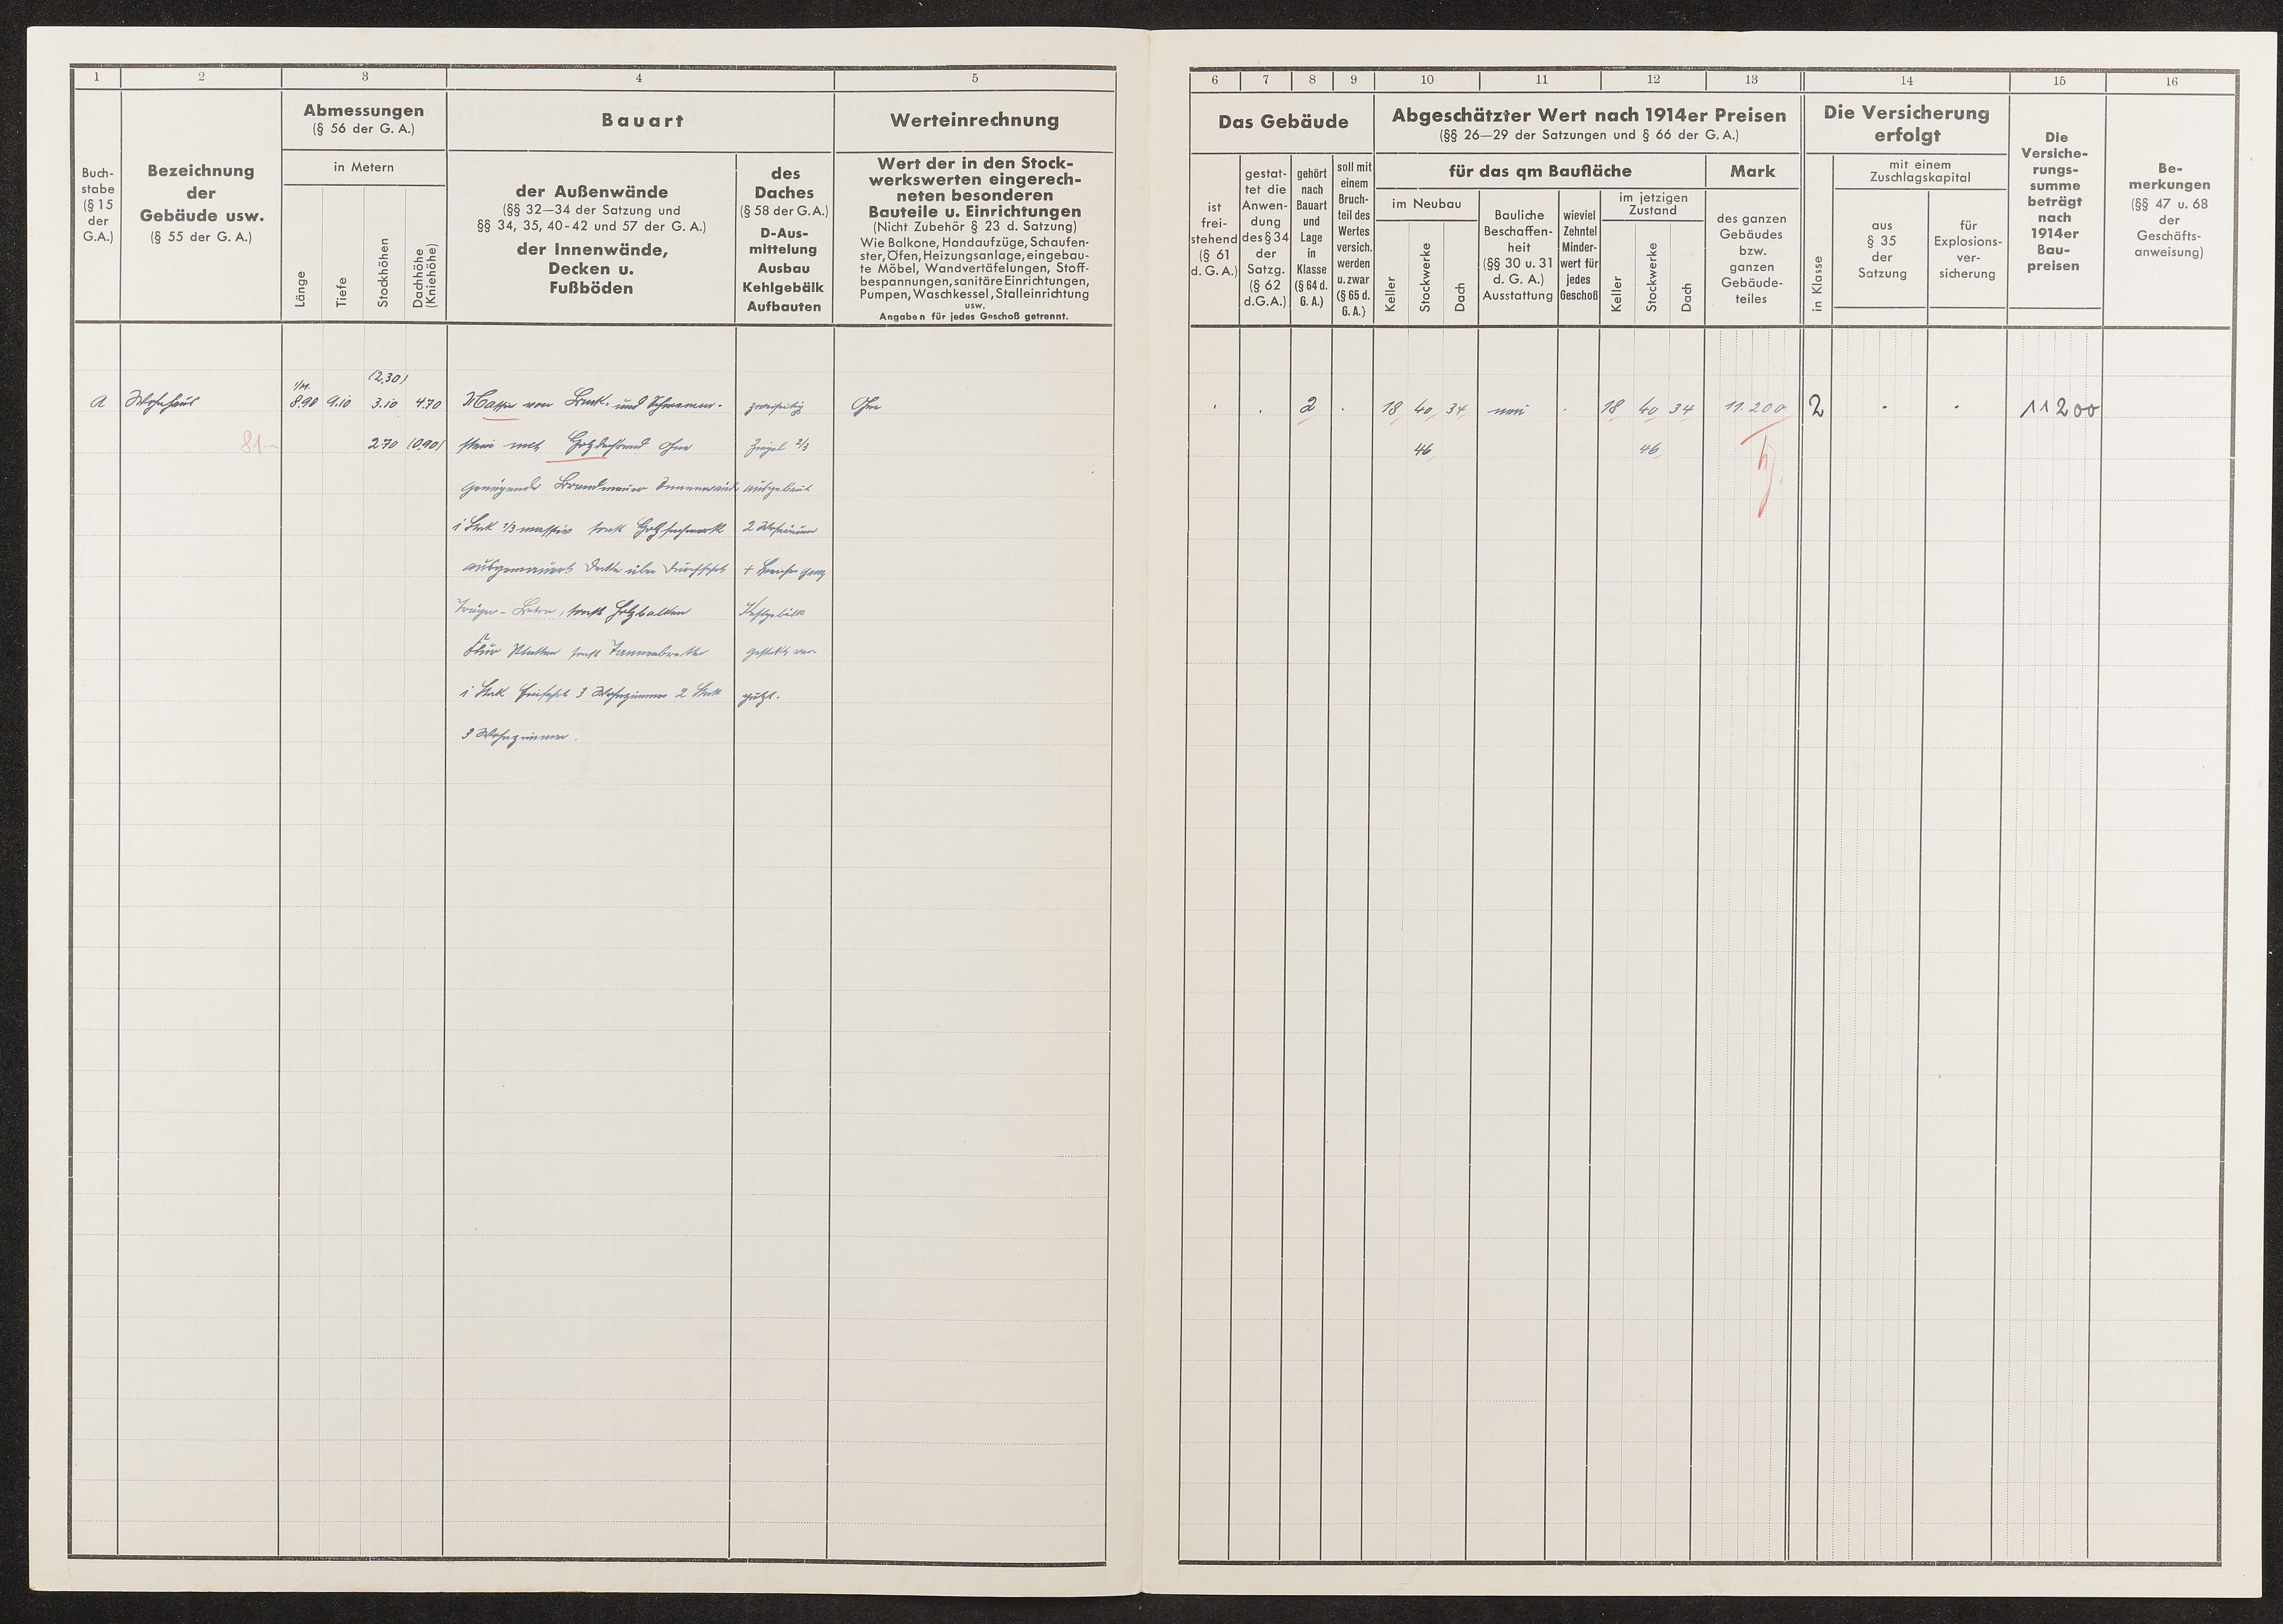 1 2 3 4 5
Buch-
stabe
(§ 15
der
G.A.)
Bezeichnung
der
Gebäude usw.
(§ 55 der G. A.)
Abmessungen
(§ 56 der G. A.)
in Metern
Länge
Tiefe
Stockhöhen
Dachhöhe
(Kniehöhe)
Bauart
der Außenwände
(§§ 32—34 der Satzung und
§§ 34, 35, 40-42 und 57 der G. A.)
der Innenwände,
Decken u.
Fußböden
des
Daches
(§ 58 der G.A.)
D-Aus-
mittelung
Ausbau
Kehlgebälk
Aufbauten
Werteinrechnung
Wert der in den Stock-
werkswerten eingerech-
neten besonderen
Bauteile u. Einrichtungen
(Nicht Zubehör § 23 d. Satzung)
Wie Balkone, Handaufzüge, Schaufen-
ster, Öfen, Heizungsanlage, eingebau-
te Möbel, Wandvertäfelungen, Stoff-
bespannungen, sanitäre Einrichtungen,
Pumpen, Waschkessel, Stalleinrichtung
usw.
Angaben für jedes Geschoß getrennt.
(2,30)
A Wohnhaus 8.90 9.10 3.10 4.70 Massiv von und Schwemm- Ohne
81- 2.70 (0.90) stein mit ohne Ziegel 2/3
genügende Brandmauer ausgebaut
1 Stock 1/3 massiv sonst Holzfachwerk
ausgemauert Decke über Durchfahrt
Träger - Beton, sonst Holzbalken
Flur Platten sonst Tannenbretter
1 Stock 3 Wohnzimmer 2 Stock putzt.
3 Wohnzimmer.
6 7 8 9 10 11 12 13 14 15 16
Das Gebäude
ist
frei-
stehend
(§ 61
d. G. A.)
gestat-
tet die
Anwen-
dung
des § 34
der
Satzg.
(§ 62
d.G.A.)
gehört
nach
Bauart
und
Lage
in
Klasse
(§ 64 d.
G. A.)
soll mit
einem
Bruch-
teil des
Wertes
versich.
werden
u. zwar
(§ 65 d.
G. A.)
Abgeschätzter Wert nach 1914er Preisen
(§§ 26—29 der Satzungen und § 66 der G. A.)
für das qm Baufläche
im Neubau
Keller
Stockwerke
Dach
Bauliche
Beschaffen-
heit
(§§ 30 u. 31
d. G. A.)
Ausstattung
wieviel
Zehntel
Minder-
wert für
jedes
Geschoß
im jetzigen
Zustand
Keller
Stockwerke
Dach
Mark
des ganzen
Gebäudes
bzw.
ganzen
Gebäude-
teiles
Die Versicherung
erfolgt
in Klasse
mit einem
Zuschlagskapital
aus
§ 35
der
Satzung
für
Explosions-
ver-
sicherung
Die
Versiche-
rungs-
summe
beträgt
nach
1914er
Bau-
preisen
Be-
merkungen
(§§ 47 u. 68
der
Geschäfts-
anweisung)
2 18 40 34 neu 18 40 34 11.200 2 11200
46 46